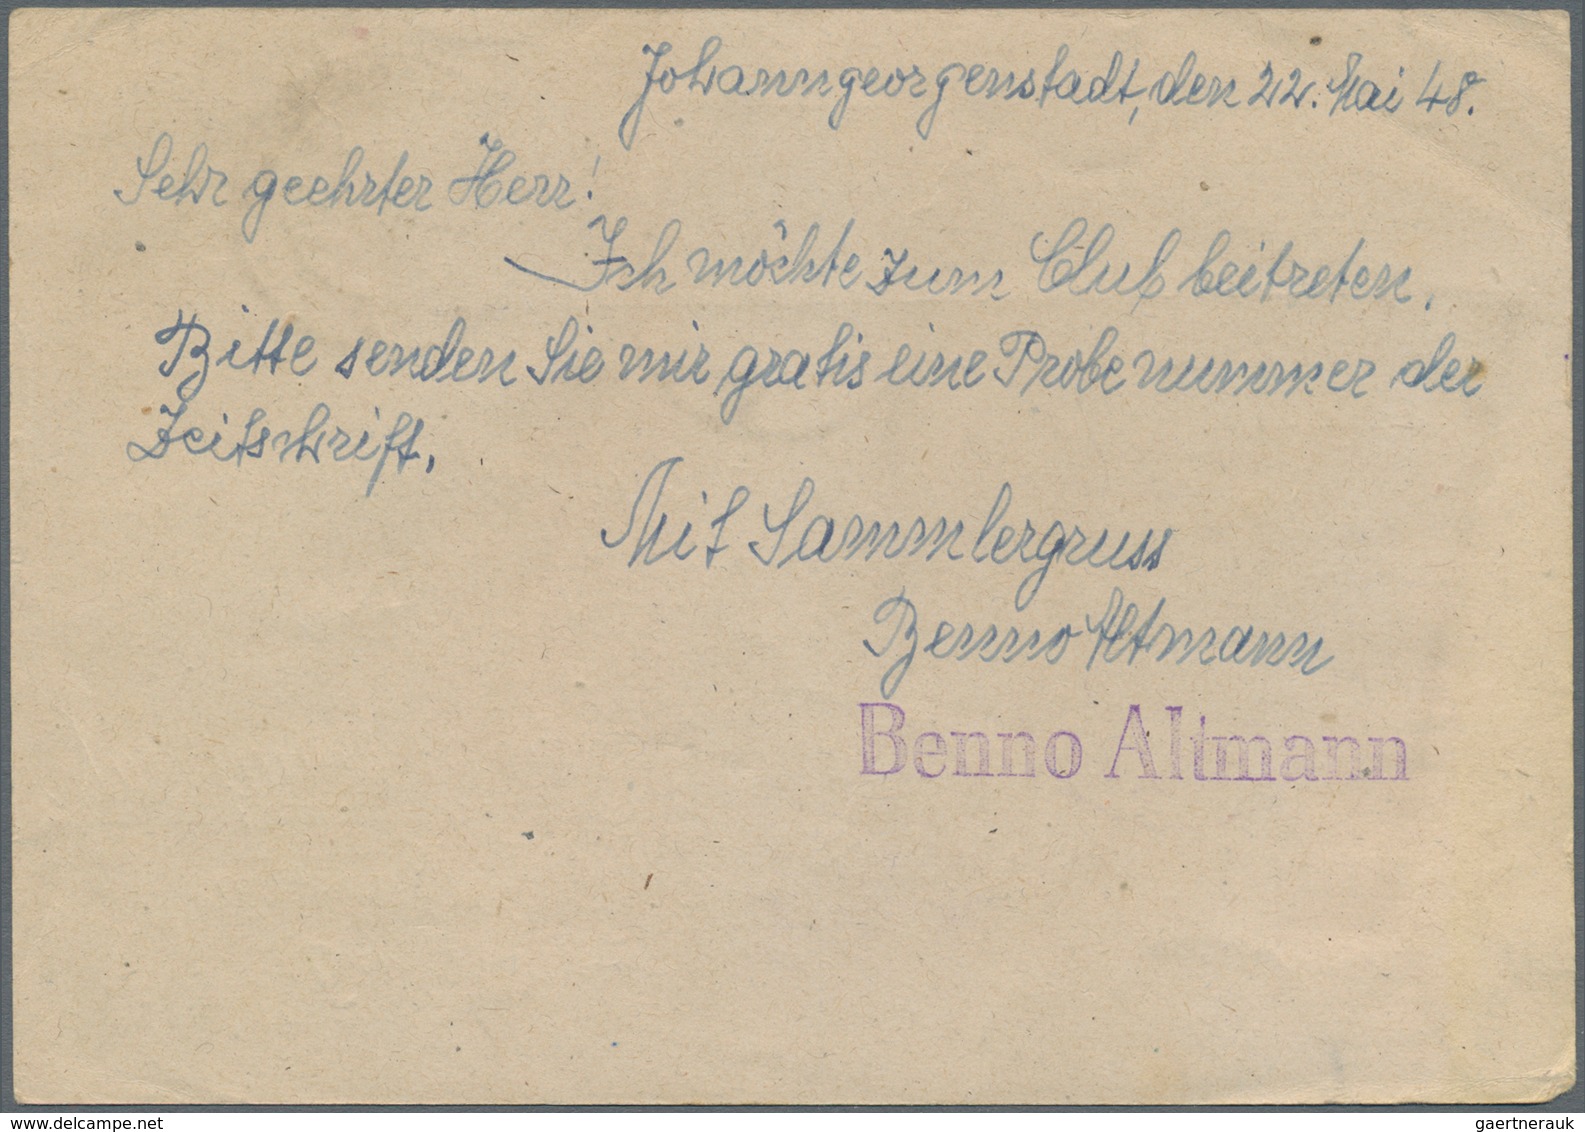 Johanngeorgenstadt, den 22. Mai 48.
Sehr geehrter Herr!
Ich möchte zum Club beitreten.
Bitte senden Sie mir gratis eine Probenummer der
Zeitschrift.
Mit Sammlergruss
Benno Altmann
Benno Altmann
delcampe.net
gaertnerauk